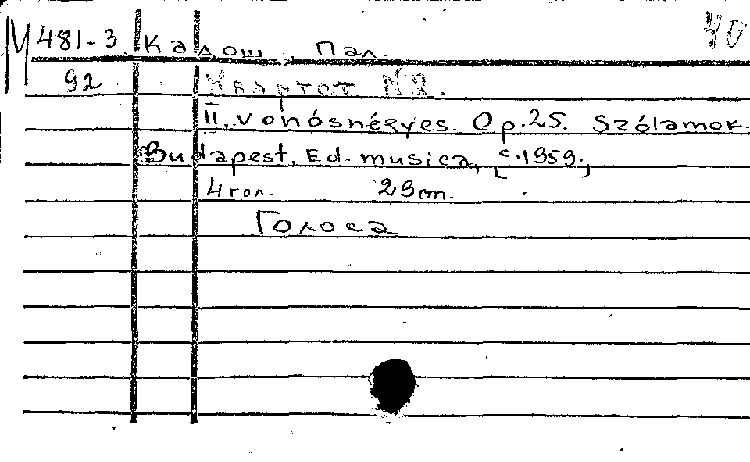 М 481-3 Кадош Пал. 40
92 Квартет №2.
II. vonósnégyes. Op. 25. Szólamok.
Budapest, Ed. musica, [c. 1959.]
4 гол. 29 cm.
Голоса